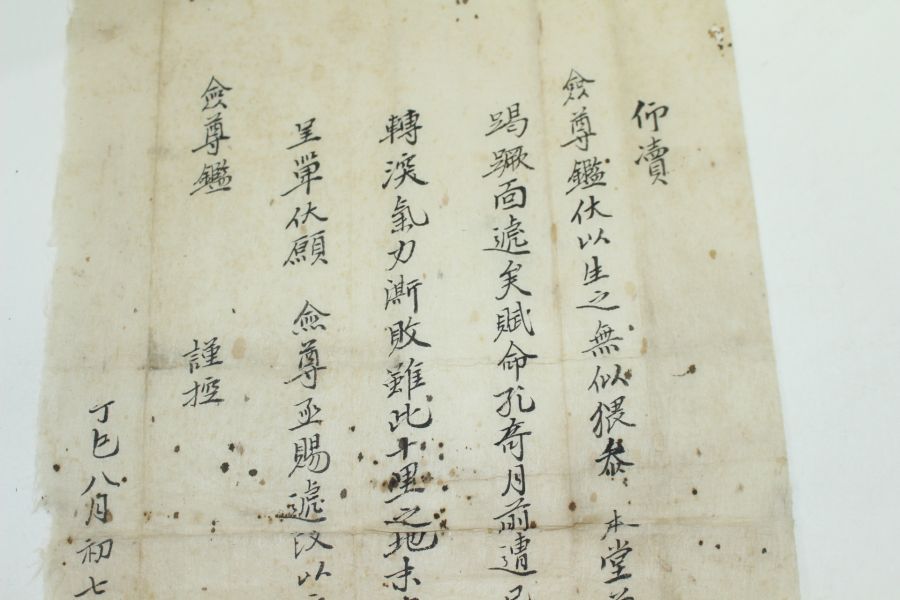 仰瀆
僉尊鑑伏以生之無似猥叅 本堂
蹋蹶面遞矣賦命孔奇月前遭
轉深氣力澌敗雖此十里之地末
呈單伏願 僉尊亟賜遞改以
僉尊鑑 謹控
丁巳八月初七